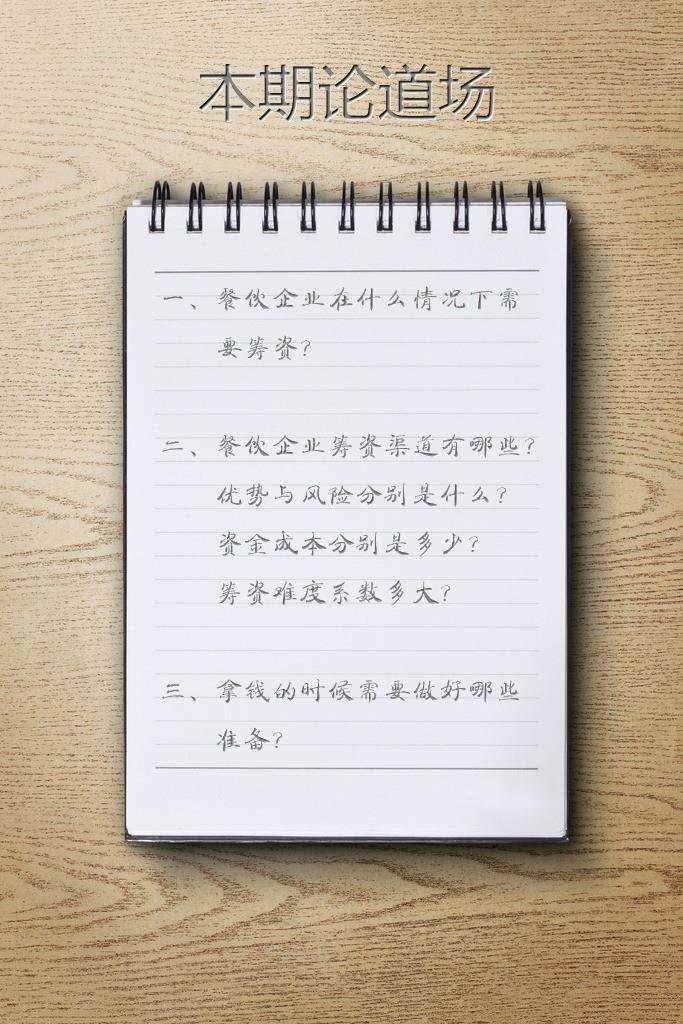 本期论道场
一、餐饮企业在什么情况下需
要筹资?
二、餐饮企业筹资渠道有哪些?
优势与风险分别是什么?
资金成本分别是多少?
筹资难度系数多大?
三、拿钱的时候需要做好哪些
准备?